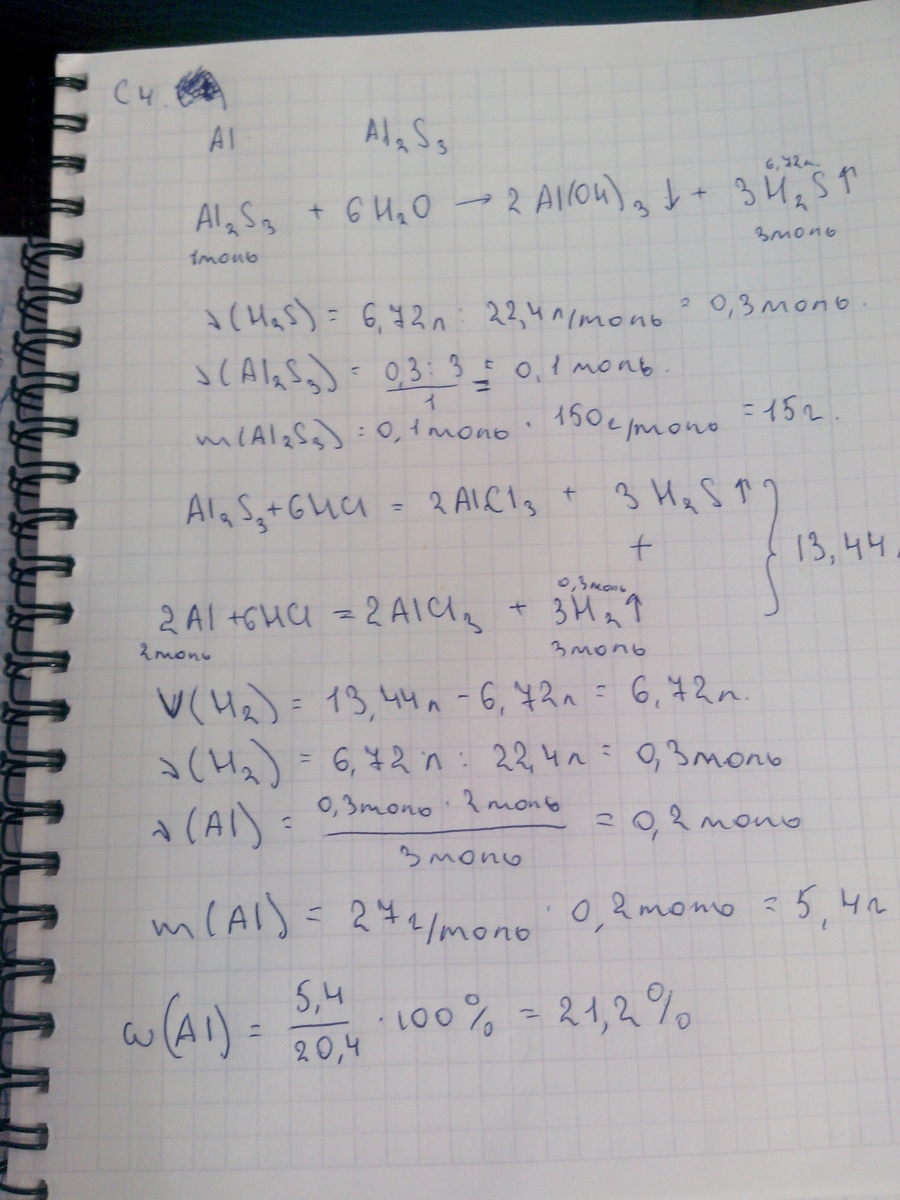 С4.
Al Al₂S₃
6,72л.
Al₂S₃ + 6H₂O → 2Al(OH)₃↓ + 3H₂S↑
1моль 3моль
ν(H₂S) = 6,72л : 22,4л/моль = 0,3моль.
ν(Al₂S₃) = (0,3 : 3)/1 = 0,1моль.
m(Al₂S₃) = 0,1моль · 150г/моль = 15г.
Al₂S₃ + 6HCl = 2AlCl₃ + 3H₂S↑
+ } 13,44
0,3моль
2Al + 6HCl = 2AlCl₃ + 3H₂↑
2моль 3моль
V(H₂) = 13,44л - 6,72л = 6,72л.
ν(H₂) = 6,72л : 22,4л = 0,3моль
ν(Al) = (0,3моль · 2моль)/3моль = 0,2моль
m(Al) = 27г/моль · 0,2моль = 5,4г
ω(Al) = 5,4/20,4 · 100% = 21,2%